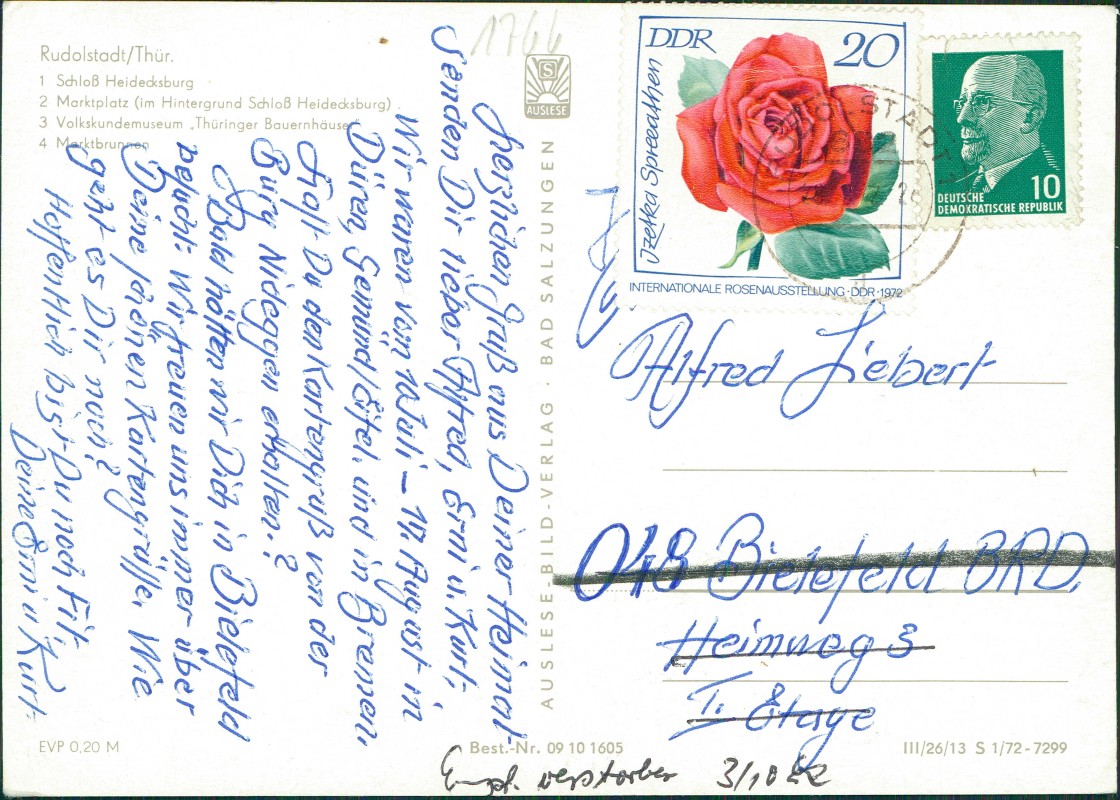 Rudolstadt/Thür.
1 Schloß Heidecksburg
2 Marktplatz (im Hintergrund Schloß Heidecksburg)
3 Volkskundemuseum „Thüringer Bauernhäuser“
4 Marktbrunnen
1766
AUSLESE
DDR 20
Izetka Spreeathen
INTERNATIONALE ROSENAUSSTELLUNG · DDR · 1972
10
DEUTSCHE
DEMOKRATISCHE REPUBLIK
herzlichen Gruß aus Deiner Heimat
senden Dir lieber Alfred, Erni u. Kurt.
Wir waren vom Juli – 17. August in
Düren, Gemünd/Eifel und in Bremen.
Hast Du den Kartengruß von der
Burg Nideggen erhalten.?
Bald hätten wir Dich in Bielefeld
besucht. Wir freuen uns immer über
Deine schönen Kartengrüße. Wie
geht es Dir noch?
Hoffentlich bist Du noch Fit.
Deine Erni u. Kurt.
AUSLESE-BILD-VERLAG · BAD SALZUNGEN
Alfred Liebert
048 Bielefeld BRD.
Heimweg 3
I. Etage
EVP 0,20 M
Best.-Nr. 09 10 1605
III/26/13 S 1/72-7299
Empf. verstorben 3/10